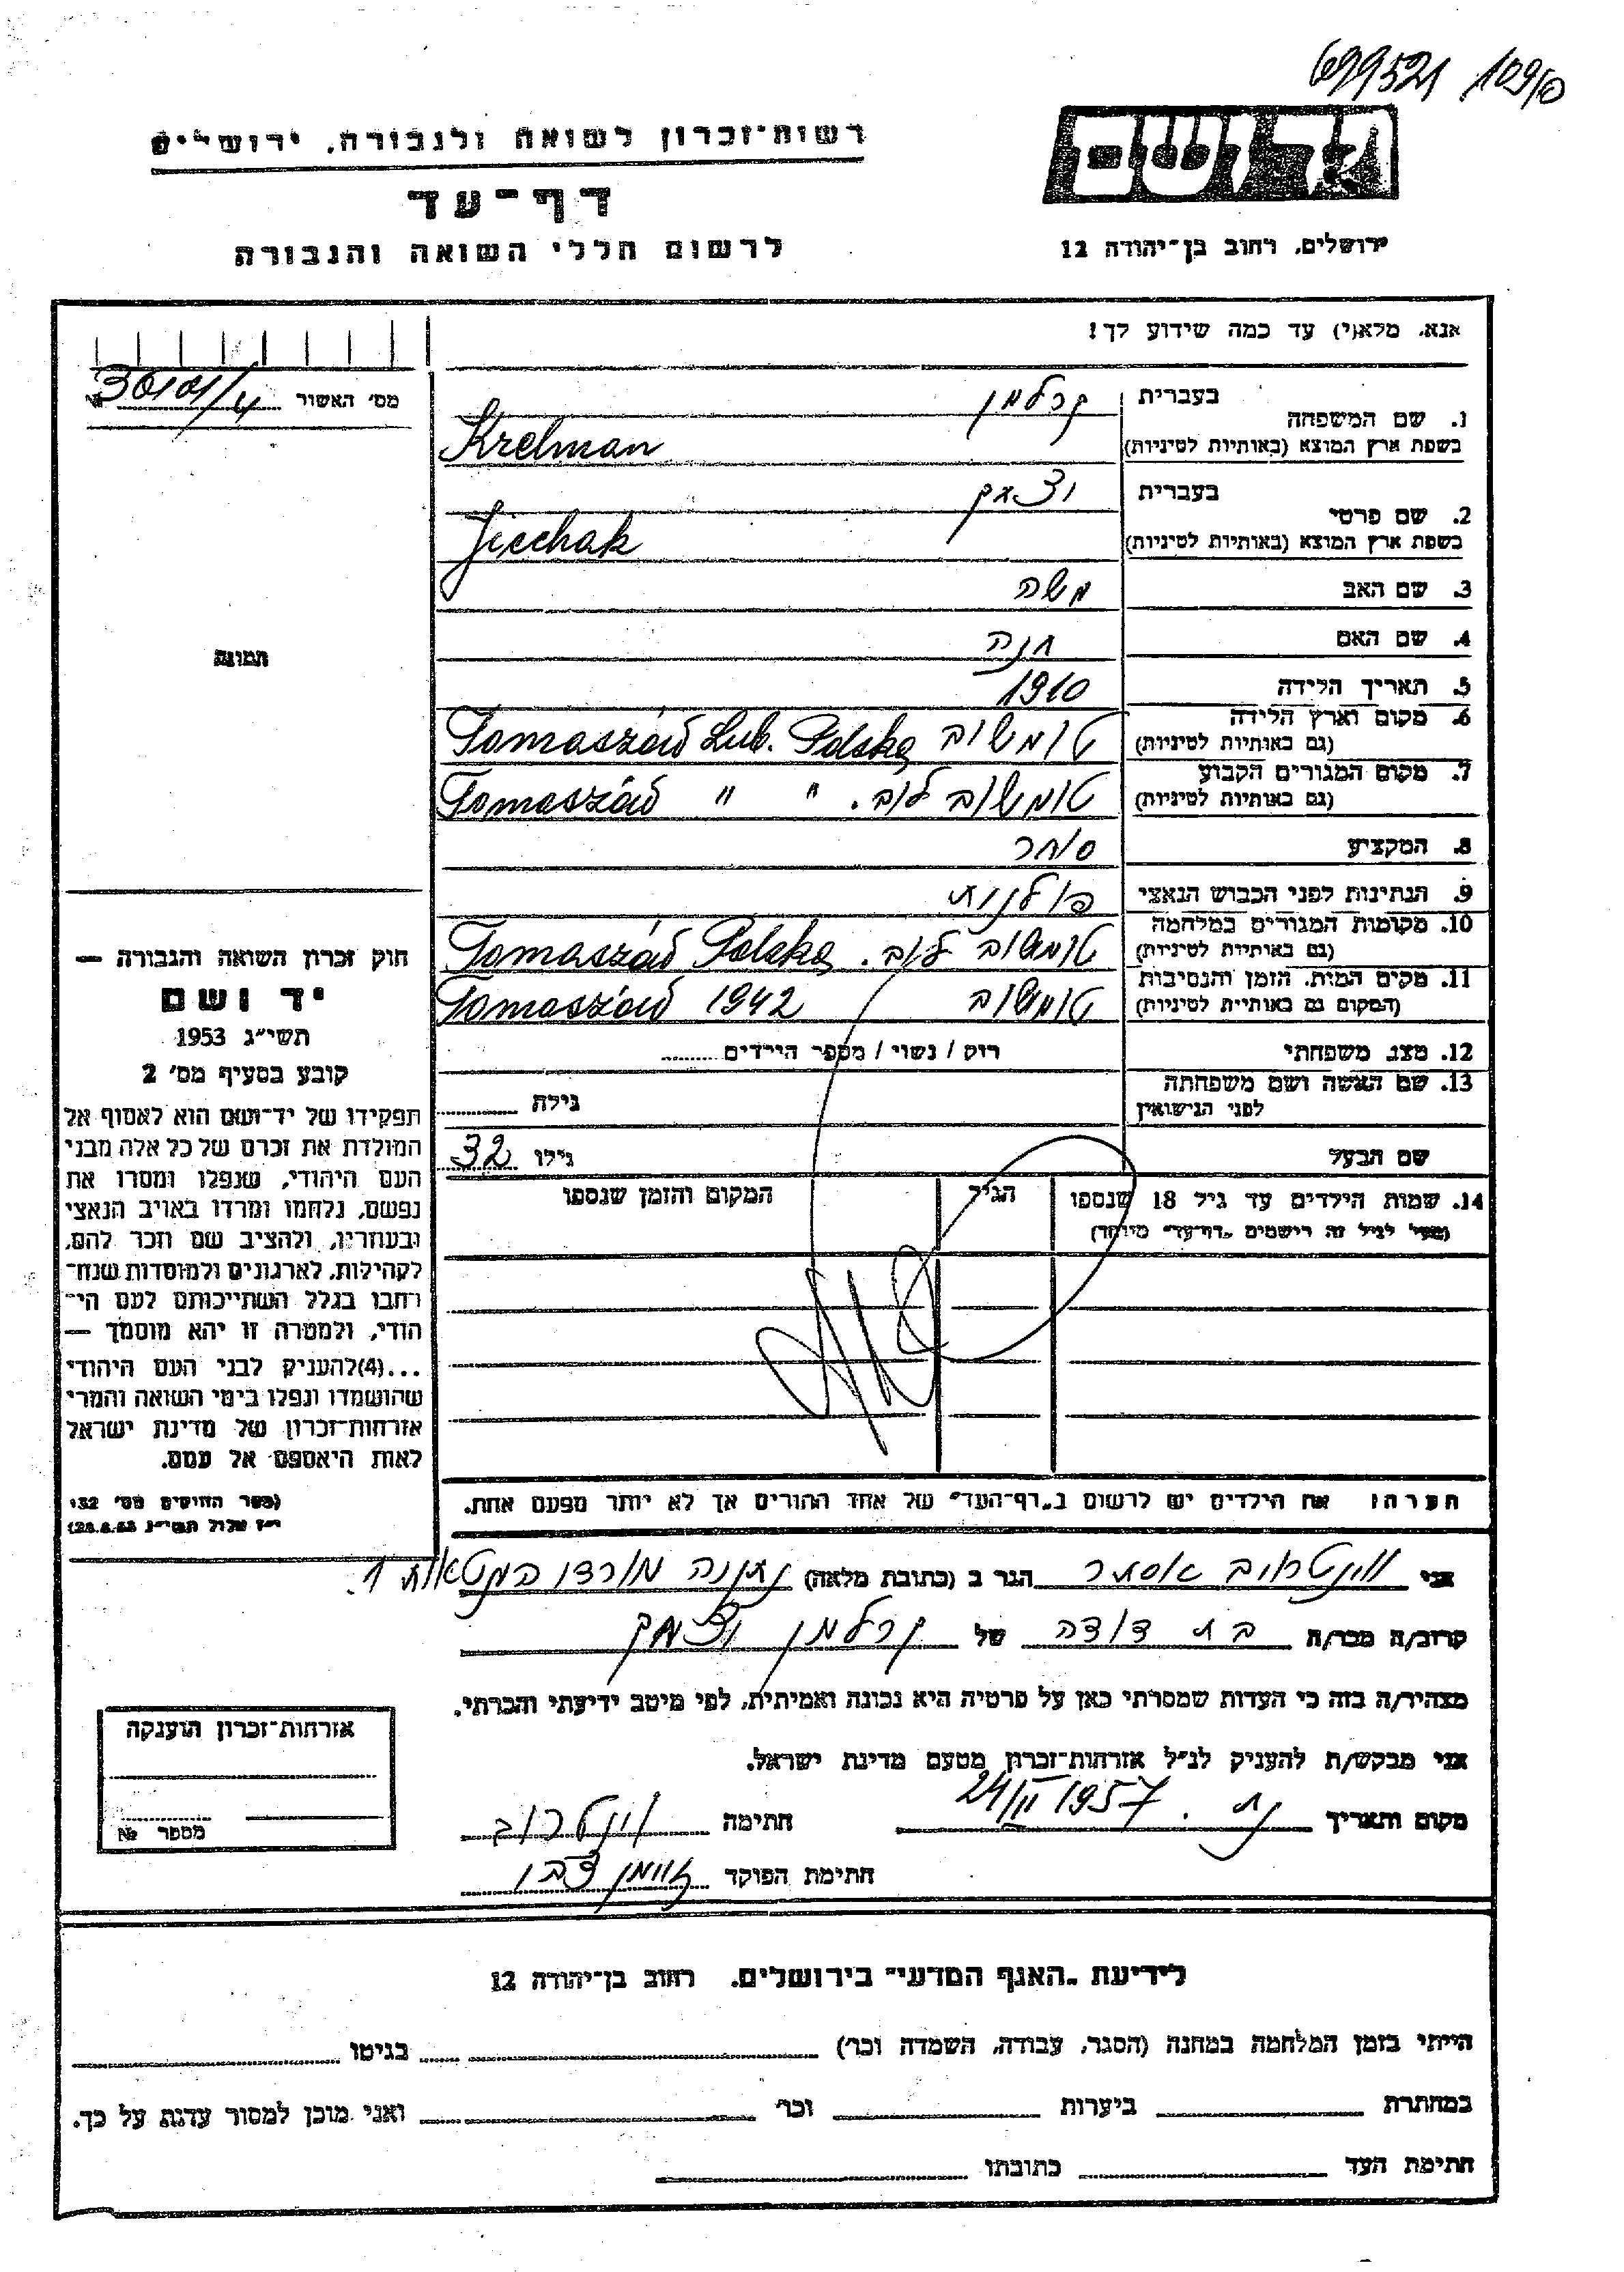 699521 109/10
יד ושם
רשות־זכרון לשואה ולגבורה, ירושלים
דף־עד
לרשום חללי השואה והגבורה
ירושלים, רחוב בן־יהודה 12
אנא, מלא(י) עד כמה שידוע לך!
מס׳ האשור 30101/4
1. שם המשפחה בעברית קרלמן
בשפת ארץ המוצא (באותיות לטיניות) Krelman
2. שם פרטי בעברית יצחק
בשפת ארץ המוצא (באותיות לטיניות) Jicchak
3. שם האב משה
4. שם האם חנה
תמונה
5. תאריך הלידה 1910
6. מקום וארץ הלידה (גם באותיות לטיניות) טומשוב Tomaszów Lub. Polska
7. מקום המגורים הקבוע (גם באותיות לטיניות) טומשוב לוב. Tomaszów " "
8. המקציע סוחר
9. הנתינות לפני הכבוש הנאצי פולנית
10. מקומות המגורים במלחמה (גם באותיות לטיניות) טומשוב לוב. Tomaszów Polska
11. מקום המות, הזמן והנסיבות (המקום גם באותיות לטיניות) טומשוב Tomaszów 1942
12. מצב משפחתי רוק / נשוי / מספר הילדים
13. שם האשה ושם משפחתה לפני הנישואין גילה
שם הבעל גילו 32
14. שמות הילדים עד גיל 18 שנספו הגיל המקום והזמן שנספו
(מעל לגיל זה רישמים "דף־עד" מיוחד)
חוק זכרון השואה והגבורה —
יד ושם
תשי״ג 1953
קובע בסעיף מס׳ 2
תפקידו של יד־ושם הוא לאסוף אל
המולדת את זכרם של כל אלה מבני
העם היהודי, שנפלו ומסרו את
נפשם, נלחמו ומרדו באויב הנאצי
ובעוזריו, ולהציב שם וזכר להם,
לקהילות, לארגונים ולמוסדות שנח־
רבו בגלל השתייכותם לעם הי־
הודי, ולמטרה זו יהא מוסמך —
...(4)להעניק לבני העם היהודי
שהושמדו ונפלו בימי השואה והמרי
אזרחות־זכרון של מדינת ישראל
לאות היאספם אל עמם.
(ספר החוקים מס׳ 132
י״ז אלול תשי״ג 28.8.53)
הערה! את הילדים יש לרשום ב"דף־העד" של אחד ההורים אך לא יותר מפעם אחת.
אני וינטרויב אסתר הגר ב (כתובת מלאה) נתניה מורדי הגטאות 1.
קרוב/ה מכר/ה בת דודה של קרלמן יצחק
מצהיר/ה בזה כי העדות שמסרתי כאן על פרטיה היא נכונה ואמיתית, לפי מיטב ידיעתי והכרתי.
אני מבקש/ת להעניק לנ״ל אזרחות־זכרון מטעם מדינת ישראל.
מקום ותאריך נת. 24/II 1957 חתימה וינטרוב
חתימת הפוקד
אזרחות־זכרון הוענקה
מספר №
לידיעת "האגף המדעי" בירושלים, רחוב בן־יהודה 12
הייתי בזמן המלחמה במחנה (הסגר, עבודה, השמדה וכר׳) בגיטו
במחתרת ביערות וכר׳ ואני מוכן למסור עדות על כך.
חתימת העד כתובתו